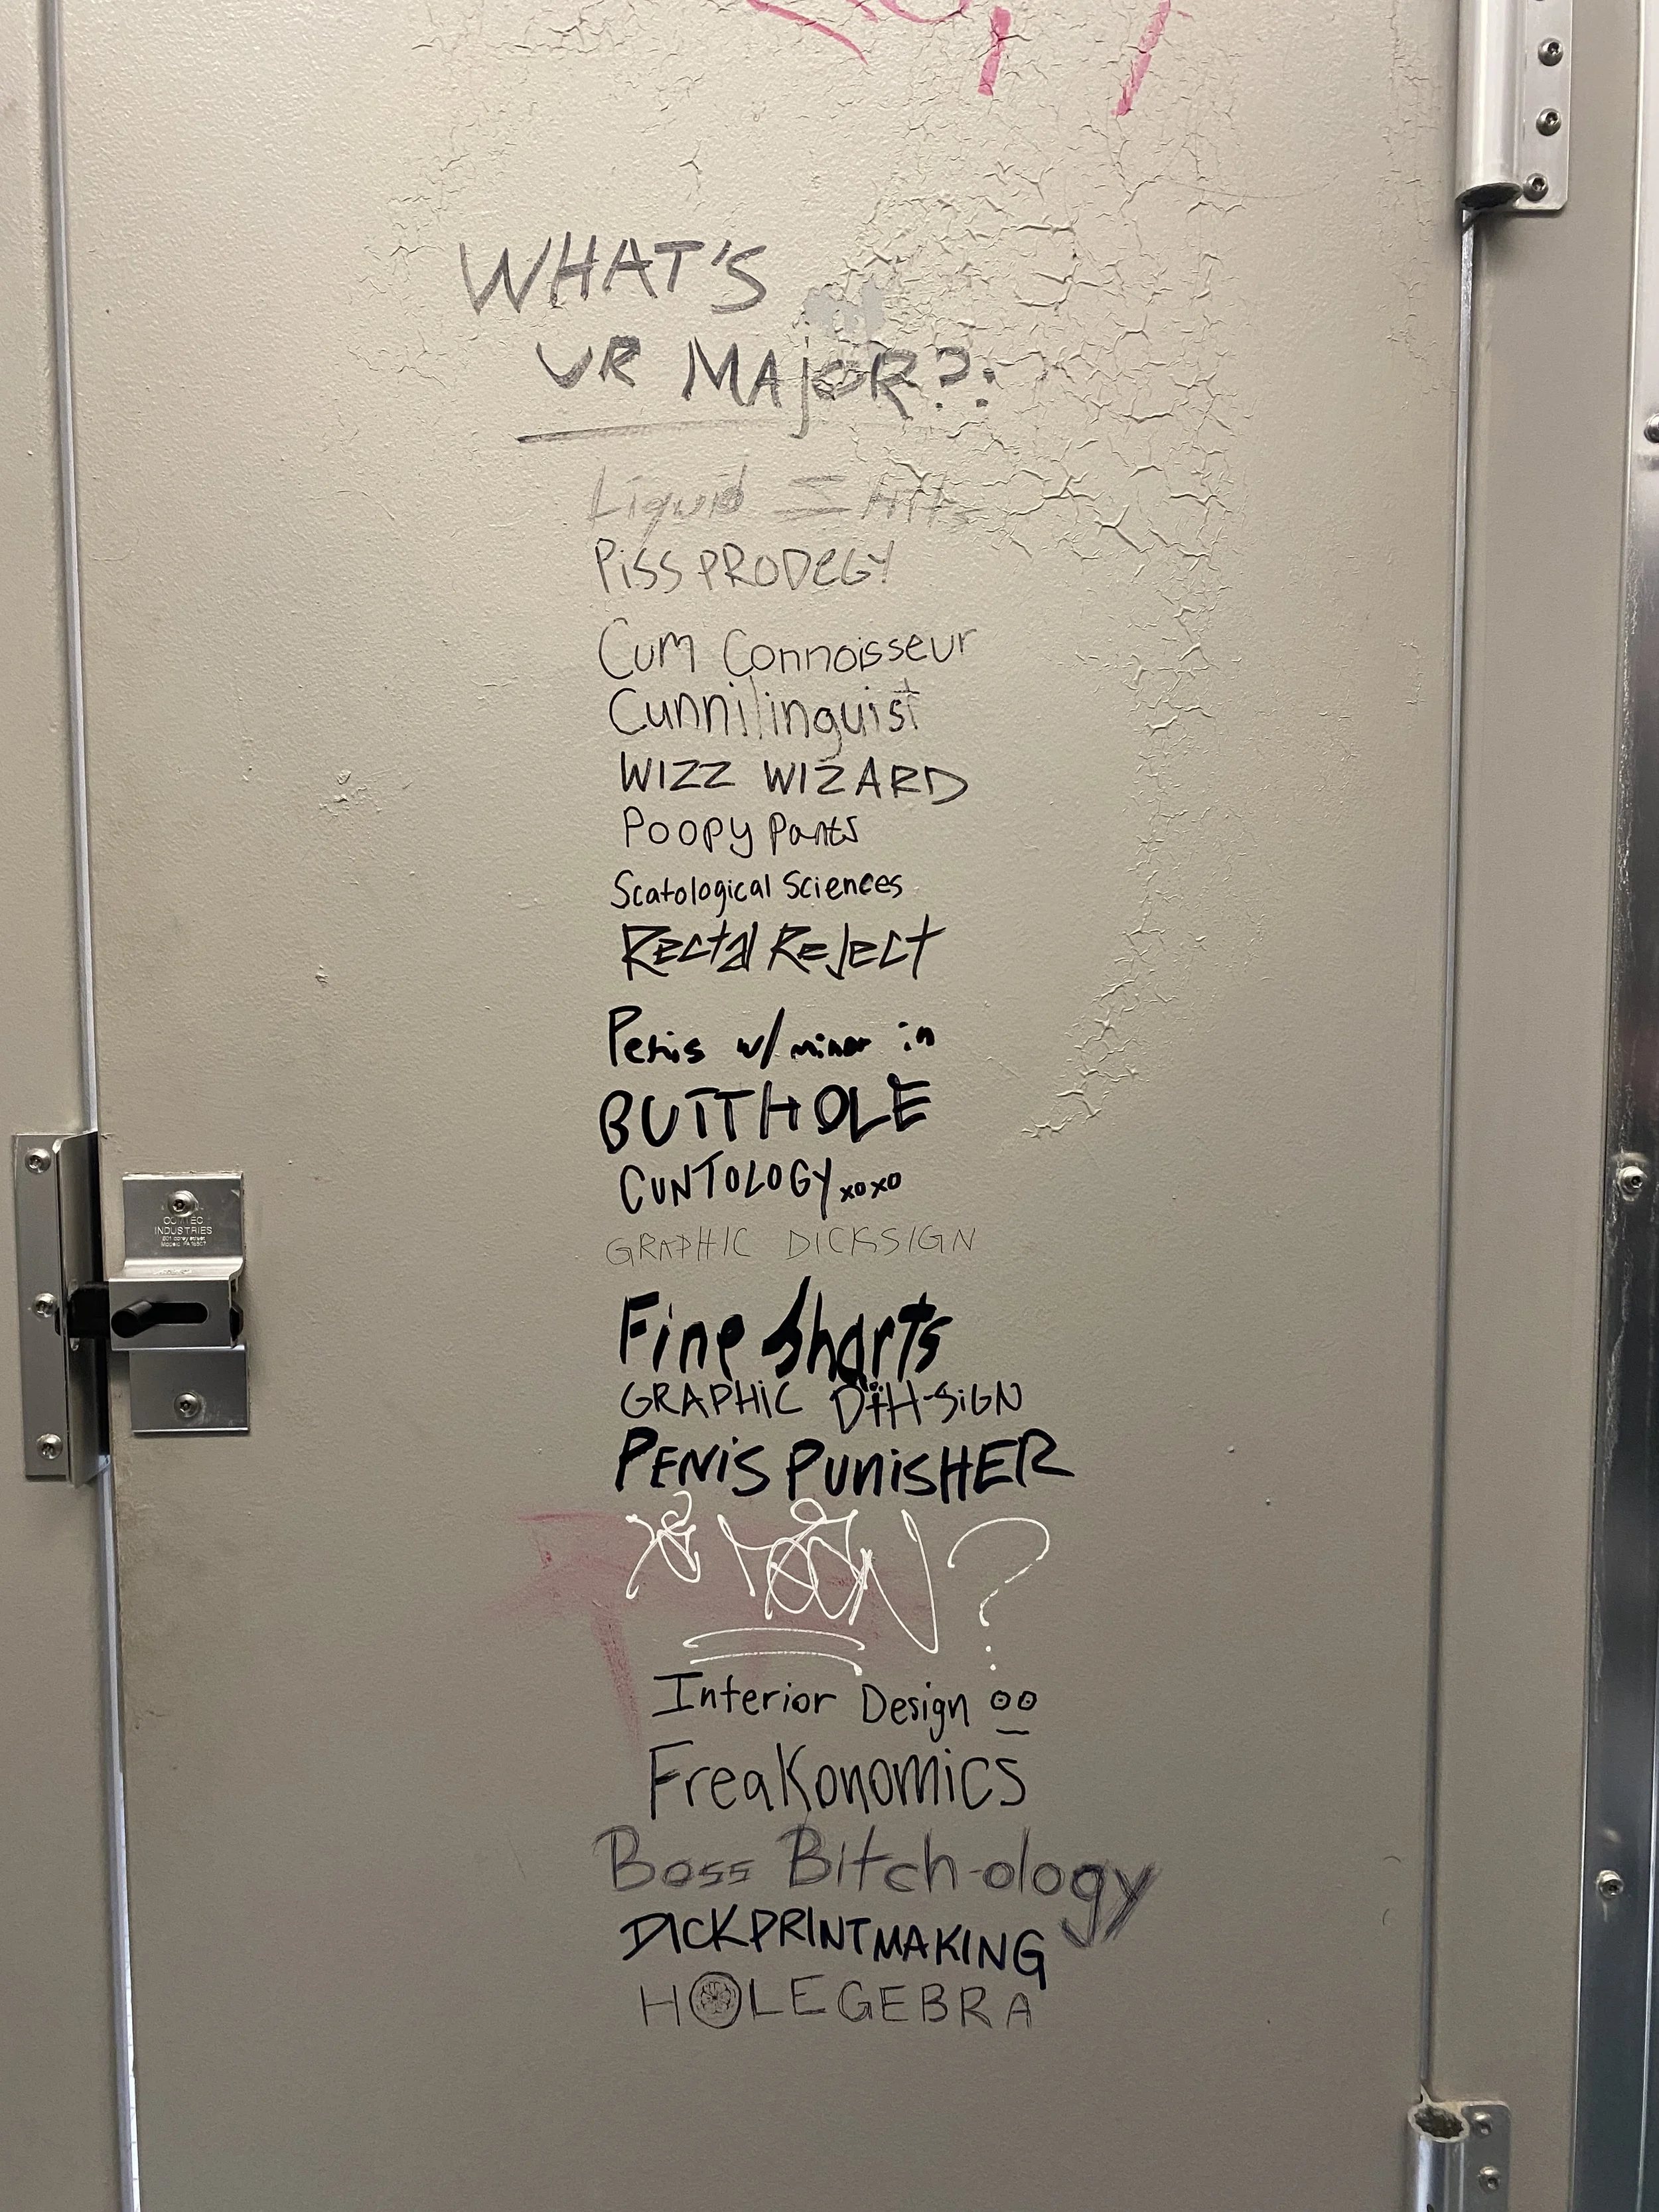 WHAT'S
UR MAjOR?:
Liquid
PiSS PRODeGY
Cum Connoisseur
Cunnilinguist
WIZZ WIZARD
Poopy Pants
Scatological Sciences
Rectal Reject
Penis w/ minor in
BUTTHOLE
CUNTOLOGY xoxo
GRAPHIC DICKSIGN
Fine Sharts
GRAPHiC DiH-SiGN
PENiS PUNiSHER
Interior Design
Freakonomics
Boss Bitch-ology
DICKPRINTMAKING
HOLEGEBRA
INDUSTRIES